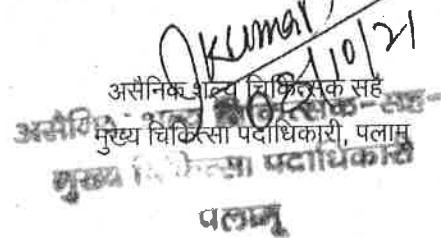 Jkumar
असैनिक शल्य चिकित्सक सह
मुख्य चिकित्सा पदाधिकारी, पलामू
असैनिक शल्य चिकित्सक-सह-
मुख्य चिकित्सा पदाधिकारी
पलामू